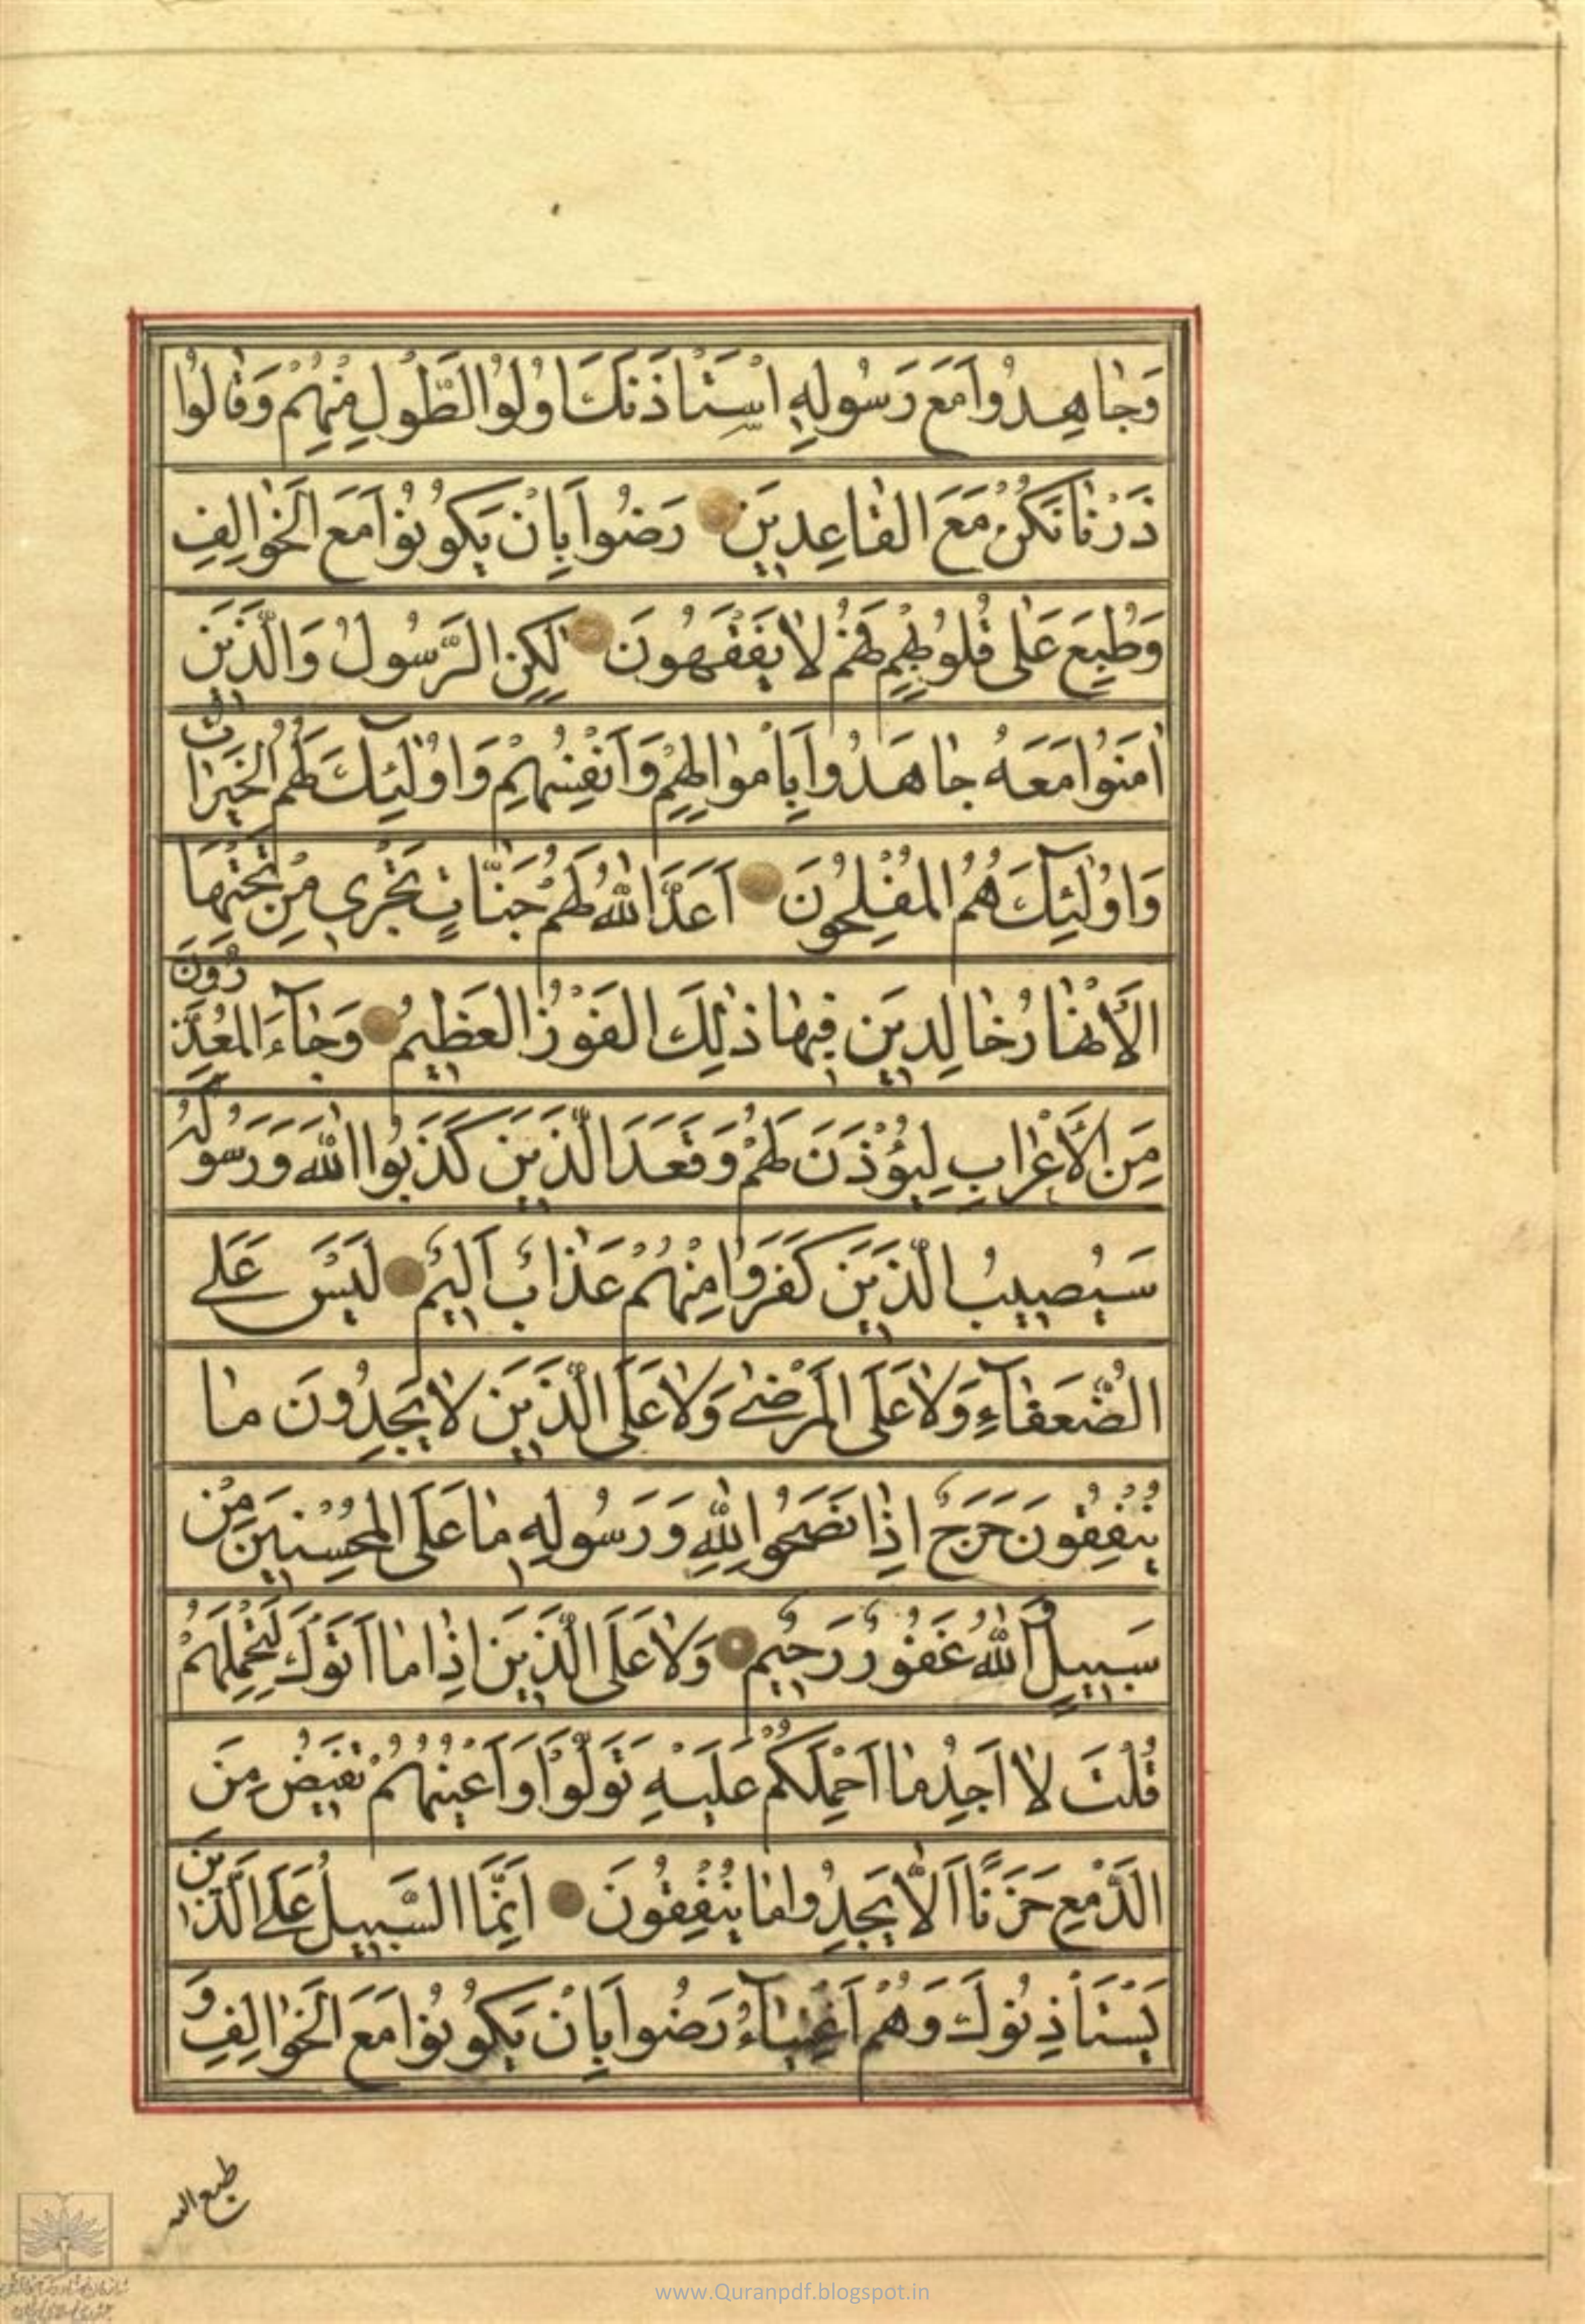 وَجاهِدُوا مَعَ رَسُولِهِ اسْتَأْذَنَكَ اُولُوا الطَّوْلِ مِنْهُمْ وَقالُوا
ذَرْنا نَكُنْ مَعَ الْقاعِدِينَ رَضُوا بِاَنْ يَكُونُوا مَعَ الْخَوالِفِ
وَطُبِعَ عَلى قُلُوبِهِمْ فَهُمْ لا يَفْقَهُونَ لكِنِ الرَّسُولُ وَالَّذِينَ
امَنُوا مَعَهُ جاهَدُوا بِاَمْوالِهِمْ وَاَنْفُسِهِمْ وَاُولئِكَ لَهُمُ الْخَيْراتُ
وَاُولئِكَ هُمُ الْمُفْلِحُونَ اَعَدَّ اللهُ لَهُمْ جَنّاتٍ تَجْرِي مِنْ تَحْتِهَا
الْاَنْهارُ خالِدِينَ فِيها ذلِكَ الْفَوْزُ الْعَظِيمُ وَجآءَ الْمُعَذِّرُونَ
مِنَ الْاَعْرابِ لِيُؤْذَنَ لَهُمْ وَقَعَدَ الَّذِينَ كَذَبُوا اللهَ وَرَسُولَهُ
سَيُصِيبُ الَّذِينَ كَفَرُوا مِنْهُمْ عَذابٌ اَلِيمٌ لَيْسَ عَلَى
الضُّعَفآءِ وَلا عَلَى الْمَرْضى وَلا عَلَى الَّذِينَ لا يَجِدُونَ ما
يُنْفِقُونَ حَرَجٌ اِذا نَصَحُوا لِلّهِ وَرَسُولِهِ ما عَلَى الْمُحْسِنِينَ مِنْ
سَبِيلٍ وَاللهُ غَفُورٌ رَحِيمٌ وَلا عَلَى الَّذِينَ اِذا ما اَتَوْكَ لِتَحْمِلَهُمْ
قُلْتَ لا اَجِدُ ما اَحْمِلُكُمْ عَلَيْهِ تَوَلَّوْا وَاَعْيُنُهُمْ تَفِيضُ مِنَ
الدَّمْعِ حَزَنًا اَلّا يَجِدُوا ما يُنْفِقُونَ اِنَّمَا السَّبِيلُ عَلَى الَّذِينَ
يَسْتَأْذِنُونَكَ وَهُمْ اَغْنِيآءُ رَضُوا بِاَنْ يَكُونُوا مَعَ الْخَوالِفِ وَ
طبع الله
www.Quranpdf.blogspot.in